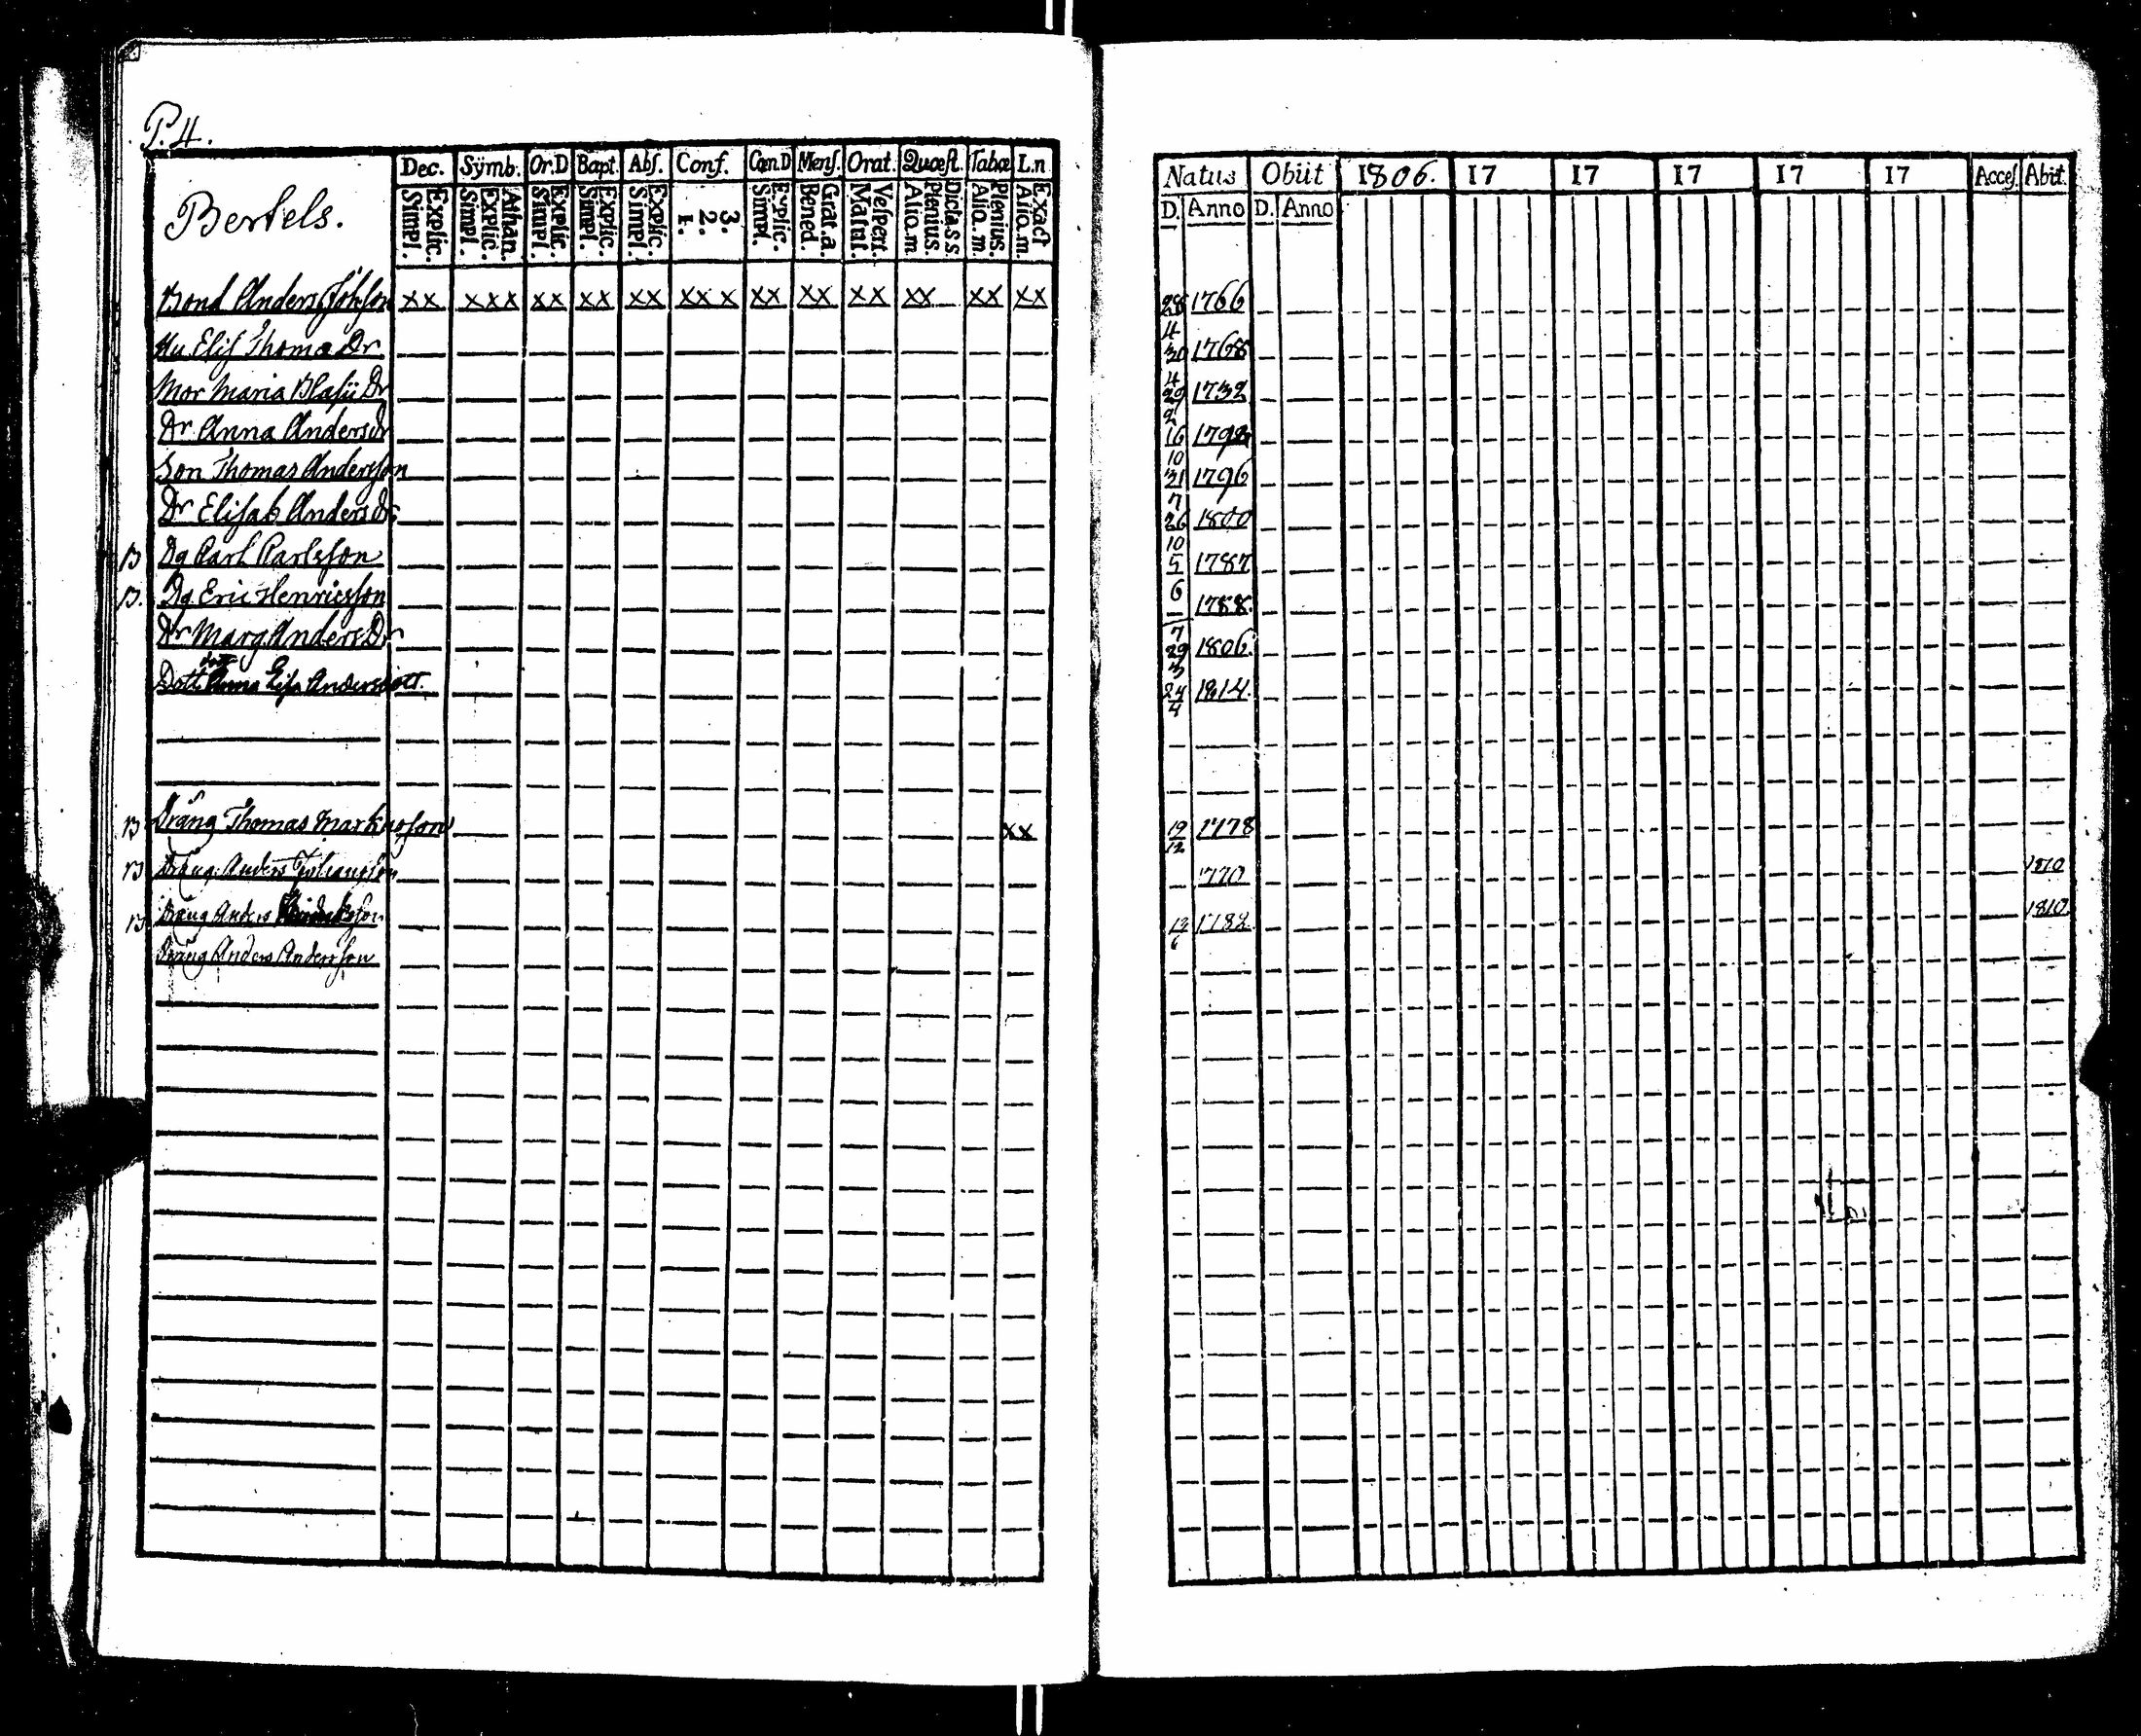 P. 4.
Bertels.
Dec. Symb. Or.D Bapt. Abſ. Conf. Cœn.D Menſ. Orat. Quæſt. Tabœ L.n
Explic. Simpl. Athan. Explic. Simpl. Explic. Simpl. Explic. Simpl. Explic. Simpl. 3. 2. 1. Explic. Simpl. Grat.a. Bened. Veſpert. Matut. Dicta.s.s. Plenius. Aliq.m Plenius. Aliq.m. Exact Aliq.m.
Natus Obiit 1806. 17 17 17 17 17 Acceſ. Abiit.
D. Anno D. Anno
Bond Anders Johſon xx xxx xx xx xx xxx xx xx xx xx xx xx 28/4 1766
Hu Eliſ Thoma Dr 30/4 1768
Mor Maria Blaſii Dr 29/9 1732
Dr Anna Anders Dr 16/10 1792
Son Thomas Anderſſon 31/7 1796
Dr Eliſab Anders Dr 26/10 1800
B Dg Carl Carlsſon 5/6 1787
B. Dg Eric Henricsſon 1788.
Dr Marg Anders Dr 7 29/3 1806.
Dott. Anna Liſa Andersdott. 24/4 1814.
B Dräng Thomas Markusſon xx 19/12 1778
B Dräng Anders Johansſon 1770 1810
B Dräng Anders 13/6 1782 1810.
Dräng Anders Anderſſon